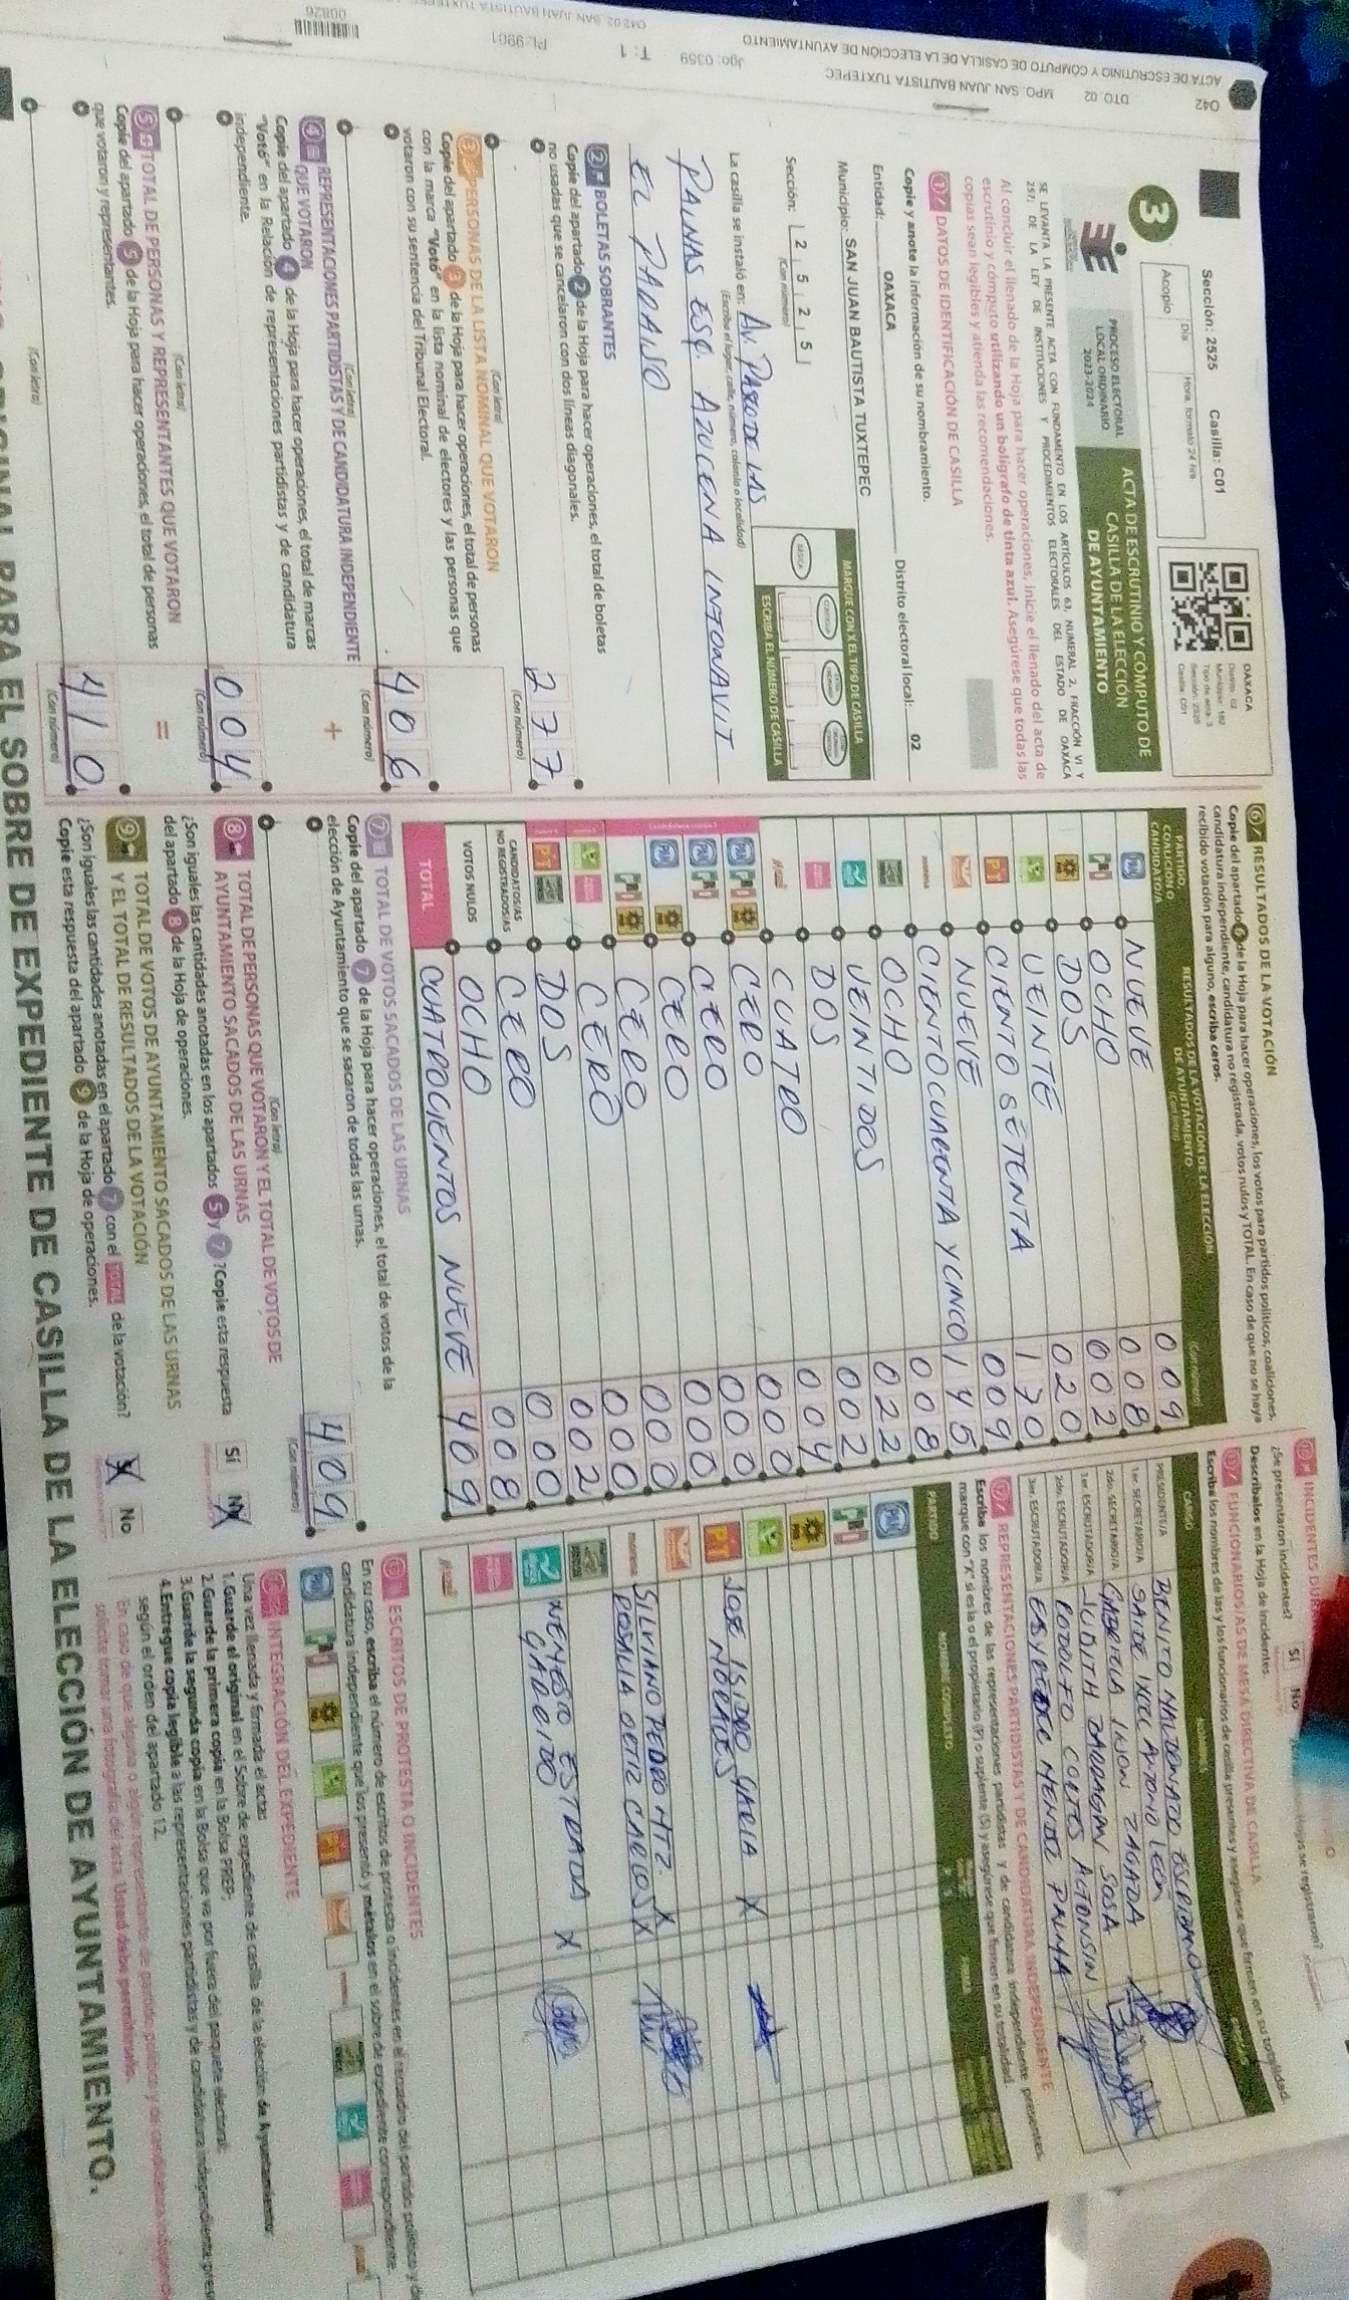 ACTA DE ESCRUTINIO Y CÓMPUTO DE CASILLA DE LA ELECCIÓN DE AYUNTAMIENTO
042 DTO. 02 MPO. SAN JUAN BAUTISTA TUXTEPEC
Sección: 2525 Casilla: C01
Acopio
Día
Hora, formato 24 hrs
3
OAXACA
PROCESO ELECTORAL
LOCAL ORDINARIO
2023-2024
ACTA DE ESCRUTINIO Y CÓMPUTO DE
CASILLA DE LA ELECCIÓN
DE AYUNTAMIENTO
SE LEVANTA LA PRESENTE ACTA CON FUNDAMENTO EN LOS ARTÍCULOS 63, NUMERAL 2, FRACCIÓN VI Y
257, DE LA LEY DE INSTITUCIONES Y PROCEDIMIENTOS ELECTORALES DEL ESTADO DE OAXACA
Al concluir el llenado de la Hoja para hacer operaciones, inicie el llenado del acta de
escrutinio y cómputo utilizando un bolígrafo de tinta azul. Asegúrese que todas las
copias sean legibles y atienda las recomendaciones.
1 DATOS DE IDENTIFICACIÓN DE CASILLA
Copie y anote la información de su nombramiento.
Entidad: OAXACA Distrito electoral local: 02
Municipio: SAN JUAN BAUTISTA TUXTEPEC
MARQUE CON X EL TIPO DE CASILLA
Sección: 2 5 2 5
(Con número)
BÁSICA
ESCRIBA EL NÚMERO DE CASILLA
La casilla se instaló en: AV. PASEO DE LAS
(Escriba el lugar: calle, número, colonia o localidad)
PALMAS ESQ. AZUCENA INFONAVIT
EL PARAISO
2 BOLETAS SOBRANTES
Copie del apartado 2 de la Hoja para hacer operaciones, el total de boletas
no usadas que se cancelaron con dos líneas diagonales.
277
(Con letra) (Con número)
3 PERSONAS DE LA LISTA NOMINAL QUE VOTARON
Copie del apartado 3 de la Hoja para hacer operaciones, el total de personas
con la marca "Votó" en la lista nominal de electores y las personas que
votaron con su sentencia del Tribunal Electoral.
406
(Con letra) (Con número)
4 REPRESENTACIONES PARTIDISTAS Y DE CANDIDATURA INDEPENDIENTE
QUE VOTARON
Copie del apartado 4 de la Hoja para hacer operaciones, el total de marcas
"Votó" en la Relación de representaciones partidistas y de candidatura
independiente.
004
(Con letra) (Con número)
5 TOTAL DE PERSONAS Y REPRESENTANTES QUE VOTARON
Copie del apartado 5 de la Hoja para hacer operaciones, el total de personas
que votaron y representantes.
410
(Con letra) (Con número)
6 RESULTADOS DE LA VOTACIÓN
Copie del apartado 6 de la Hoja para hacer operaciones, los votos para partidos políticos, coaliciones,
candidatura independiente, candidatura no registrada, votos nulos y TOTAL. En caso de que no se haya
recibido votación para alguno, escriba ceros.
PARTIDO, COALICIÓN O CANDIDATO/A
RESULTADOS DE LA VOTACIÓN DE LA ELECCIÓN
DE AYUNTAMIENTO
(Con letra) (Con número)
NUEVE 009
OCHO 008
DOS 002
VEINTE 020
CIENTO SETENTA 170
NUEVE 009
CIENTO CUARENTA Y CINCO 145
OCHO 008
VEINTIDOS 022
DOS 002
CUATRO 004
CERO 000
CERO 000
CERO 000
CERO 000
CERO 000
DOS 002
CANDIDATOS/AS NO REGISTRADOS/AS CERO 000
VOTOS NULOS OCHO 008
TOTAL CUATROCIENTOS NUEVE 409
7 TOTAL DE VOTOS SACADOS DE LAS URNAS
Copie del apartado 7 de la Hoja para hacer operaciones, el total de votos de la
elección de Ayuntamiento que se sacaron de todas las urnas.
409
(Con letra) (Con número)
8 TOTAL DE PERSONAS QUE VOTARON Y EL TOTAL DE VOTOS DE
AYUNTAMIENTO SACADOS DE LAS URNAS
¿Son iguales las cantidades anotadas en los apartados 5 y 7? Copie esta respuesta
del apartado 8 de la Hoja de operaciones.
Sí X
9 TOTAL DE VOTOS DE AYUNTAMIENTO SACADOS DE LAS URNAS
Y EL TOTAL DE RESULTADOS DE LA VOTACIÓN
¿Son iguales las cantidades anotadas en el apartado 7 con el TOTAL de la votación?
Copie esta respuesta del apartado 9 de la Hoja de operaciones.
X No
¿Se presentaron incidentes? Sí No
Descríbalos en la Hoja de Incidentes
11 FUNCIONARIOS/AS DE MESA DIRECTIVA DE CASILLA
Escriba los nombres de las y los funcionarios de casilla presentes y asegúrese que firmen en su totalidad.
CARGO NOMBRES
PRESIDENTE/A BENITO MALDONADO ESCRIBANO
1er. SECRETARIO/A SAIDE IXCEL ANTONIO LEON
2do. SECRETARIO/A GABRIELA
1er. ESCRUTADOR/A JUDITH BARRAGAN SOSA
2do. ESCRUTADOR/A RODOLFO CORTES
3er. ESCRUTADOR/A
12 REPRESENTACIONES PARTIDISTAS Y DE CANDIDATURA INDEPENDIENTE
Escriba los nombres de las representaciones partidistas y de candidatura independiente presentes,
marque con "X" si es la o el propietario (P) o suplente (S) y asegúrese que firmen en su totalidad.
PARTIDO NOMBRE COMPLETO
JOSE ISIDRO GARCIA MORALES X
SILVIANO PEDRO MTZ. X
ROSALIA ORTIZ CARLOS X
NEMESIO ESTRADA GARRIDO X
ESCRITOS DE PROTESTA O INCIDENTES
En su caso, escriba el número de escritos de protesta o incidentes en el recuadro del partido político y de
candidatura independiente que los presentó y métalos en el sobre de expediente correspondiente.
INTEGRACIÓN DEL EXPEDIENTE
Una vez llenada y firmada el acta:
1. Guarde el original en el Sobre de expediente de casilla de la elección de Ayuntamiento.
2. Guarde la primera copia en la Bolsa PREP.
3. Guarde la segunda copia en la Bolsa que va por fuera del paquete electoral.
4. Entregue copia legible a las representaciones partidistas y de candidatura independiente
según el orden del apartado 12.
ORIGINAL PARA EL SOBRE DE EXPEDIENTE DE CASILLA DE LA ELECCIÓN DE AYUNTAMIENTO.